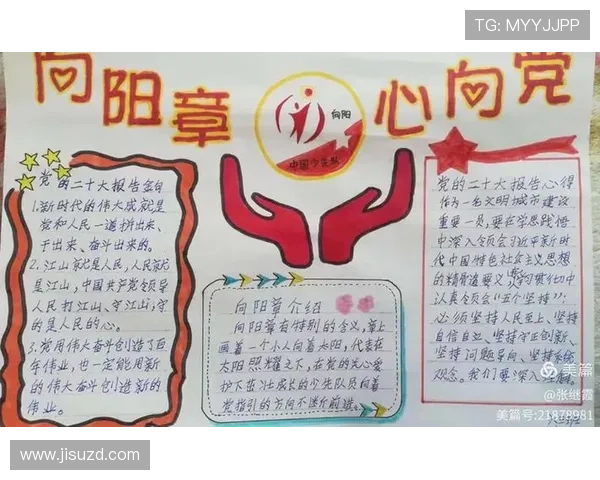 TG: MYYJJPP
向阳章
心向党
向阳
中国少先队
党的二十大报告金句
1.新时代的伟大成就是
党和人民一道拼出来、
干出来、奋斗出来的。
2.江山就是人民,人民就
是江山,中国共产党领导
人民打江山、守江山,守
的是人民的心。
3.党用伟大奋斗创造了百
年伟业,也一定能用新
的伟大奋斗创造新的
伟业。
向阳章介绍
向阳章有特别的含义,章上
画着一个小人向着太阳,代表在
太阳照耀之下,在党的关心爱
护下茁壮成长的少先队员向着
党指引的方向不断前进。
党的二十大报告心得
作为一名文明城市建设
重要一员,要在学思践悟
中深入领会习近平新时
代中国特色社会主义思想
的精神道要义,学习贯彻中
认真领会“五个坚持”,
必须坚持人民至上、坚持
自信自立、坚持守正创新、
坚持问题导向、坚持系统
观念。我们要深入
美篇
@张继霞
美篇号:21878981
https://www.jisuzd.com/